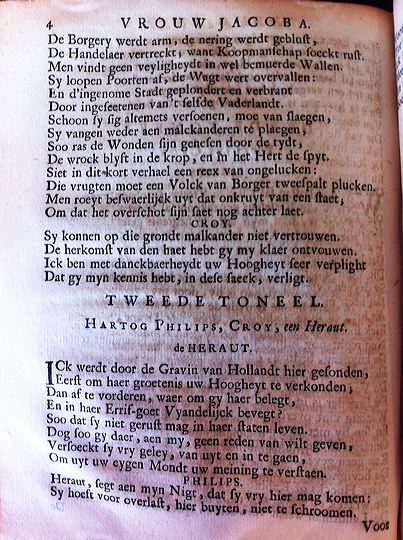 4 VROUW JACOBA.
De Borgery werdt arm, de nering werdt geblust,
De Handelaer vertreckt; want Koopmanschap soeckt rust.
Men vindt geen veyligheydt in wel bemuerde Wallen.
Sy loopen Poorten af, de Wagt wert overvallen:
En d'ingenome Stadt geplondert en verbrant
Door ingeseetenen van't selfde Vaderlandt.
Schoon sy sig altemets versoenen, moe van slaegen,
Sy vangen weder aen malckanderen te plaegen,
Soo ras de Wonden sijn genesen door de tydt,
De wrock blyft in de krop, en in het Hert de spyt.
Siet in dit kort verhael een reex van ongelucken:
Die vrugten moet een Volck van Borger tweespalt plucken.
Men roeyt beswaerlijck uyt dat onkruyt van een staet;
Om dat het overschot sijn saet nog achter laet.
CROY.
Sy konnen op die grondt malkander niet vertrouwen.
De herkomst van den haet hebt gy my klaer ontvouwen.
Ick ben met danckbaerheydt uw Hoogheyt seer verplight
Dat gy myn kennis hebt, in dese saeck, verligt.
TWEEDE TONEEL.
HARTOG PHILIPS, CROY, een Heraut.
de HERAUT.
ICk werdt door de Gravin van Hollandt hier gesonden,
Eerst om haer groetenis uw Hoogheyt te verkonden,
Dan af te vorderen, waer om gy haer belegt,
En in haer Errif-goet Vyandelijck bevegt?
Soo dat sy niet gerust mag in haer staten leven.
Dog soo gy daer, aen my, geen reden van wilt geven,
Versoeckt sy vry geley, van uyt en in te gaen,
Om uyt uw eygen Mondt uw meining te verstaen.
PHILIPS.
Heraut, segt aen myn Nigt, dat sy vry hier mag komen:
Sy hoeft voor overlast, hier buyten, niet te schroomen.
Voor